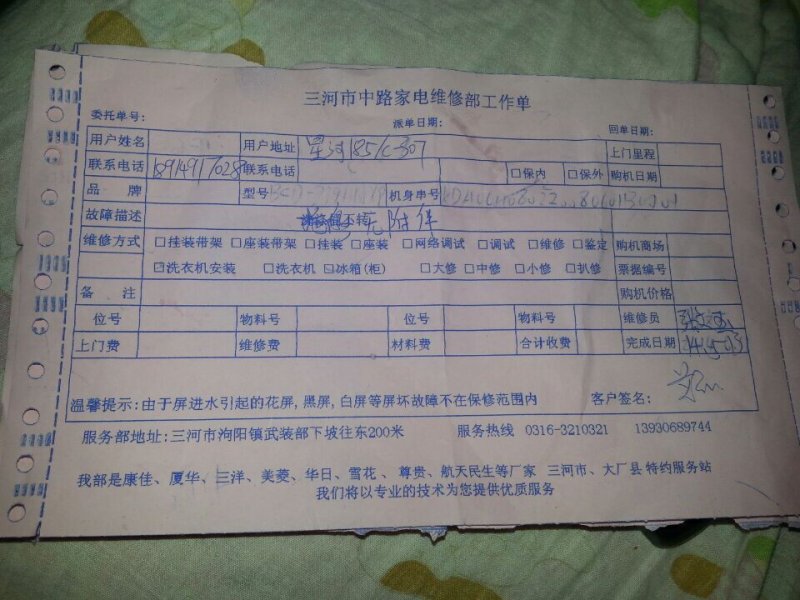 三河市中路家电维修部工作单
委托单号: 派单日期: 回单日期:
用户姓名 用户地址 星河185/C-307 上门里程
联系电话 联系电话 □保内 □保外 购机日期
品 牌 型号 机身串号
故障描述 无附件
维修方式 □挂装带架 □座装带架 □挂装 □座装 □网络调试 □调试 □维修 □鉴定 购机商场
☑洗衣机安装 □洗衣机 ☑冰箱(柜) □大修 □中修 □小修 □扒修 票据编号
备 注 购机价格
位号 物料号 位号 物料号 维修员
上门费 维修费 材料费 合计收费 完成日期
温馨提示:由于屏进水引起的花屏,黑屏,白屏等屏坏故障不在保修范围内 客户签名:
服务部地址:三河市泃阳镇武装部下坡往东200米 服务热线 0316-3210321 13930689744
我部是康佳、厦华、三洋、美菱、华日、雪花 、尊贵、航天民生等厂家 三河市、大厂县 特约服务站
我们将以专业的技术为您提供优质服务